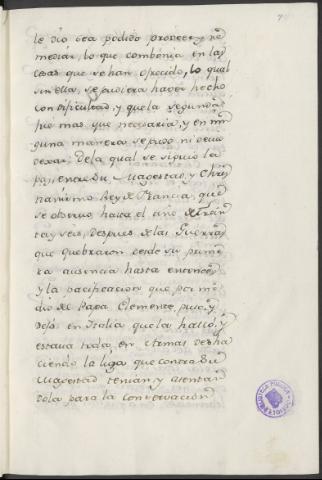 le dio sea podido proveer y re
mediar, lo que combenia en las
cosas que se han ofrecido, lo qual
sin ella, se pudiera haver hecho
con dificultad, y que la segunda
fue mas que necesaria, y en nin
guna manera se pudo ni devio
dexar. Dela qual se siguio la
paz, entre Su Magestad, y Chris
tianisimo Rey de Francia, que
se observo hasta el año de trein
ta y seis, despues de las Guerras
que quebraron desde su prime
ra ausencia hasta entonces
y la pacificacion que por me
dio de Papa Clemente, puso, y
dejo en Italia que la hallo, y
estaba toda en Armas desha
ciendo la liga que contra Su
Magestad tenian, y atentan
dola para la conservacion